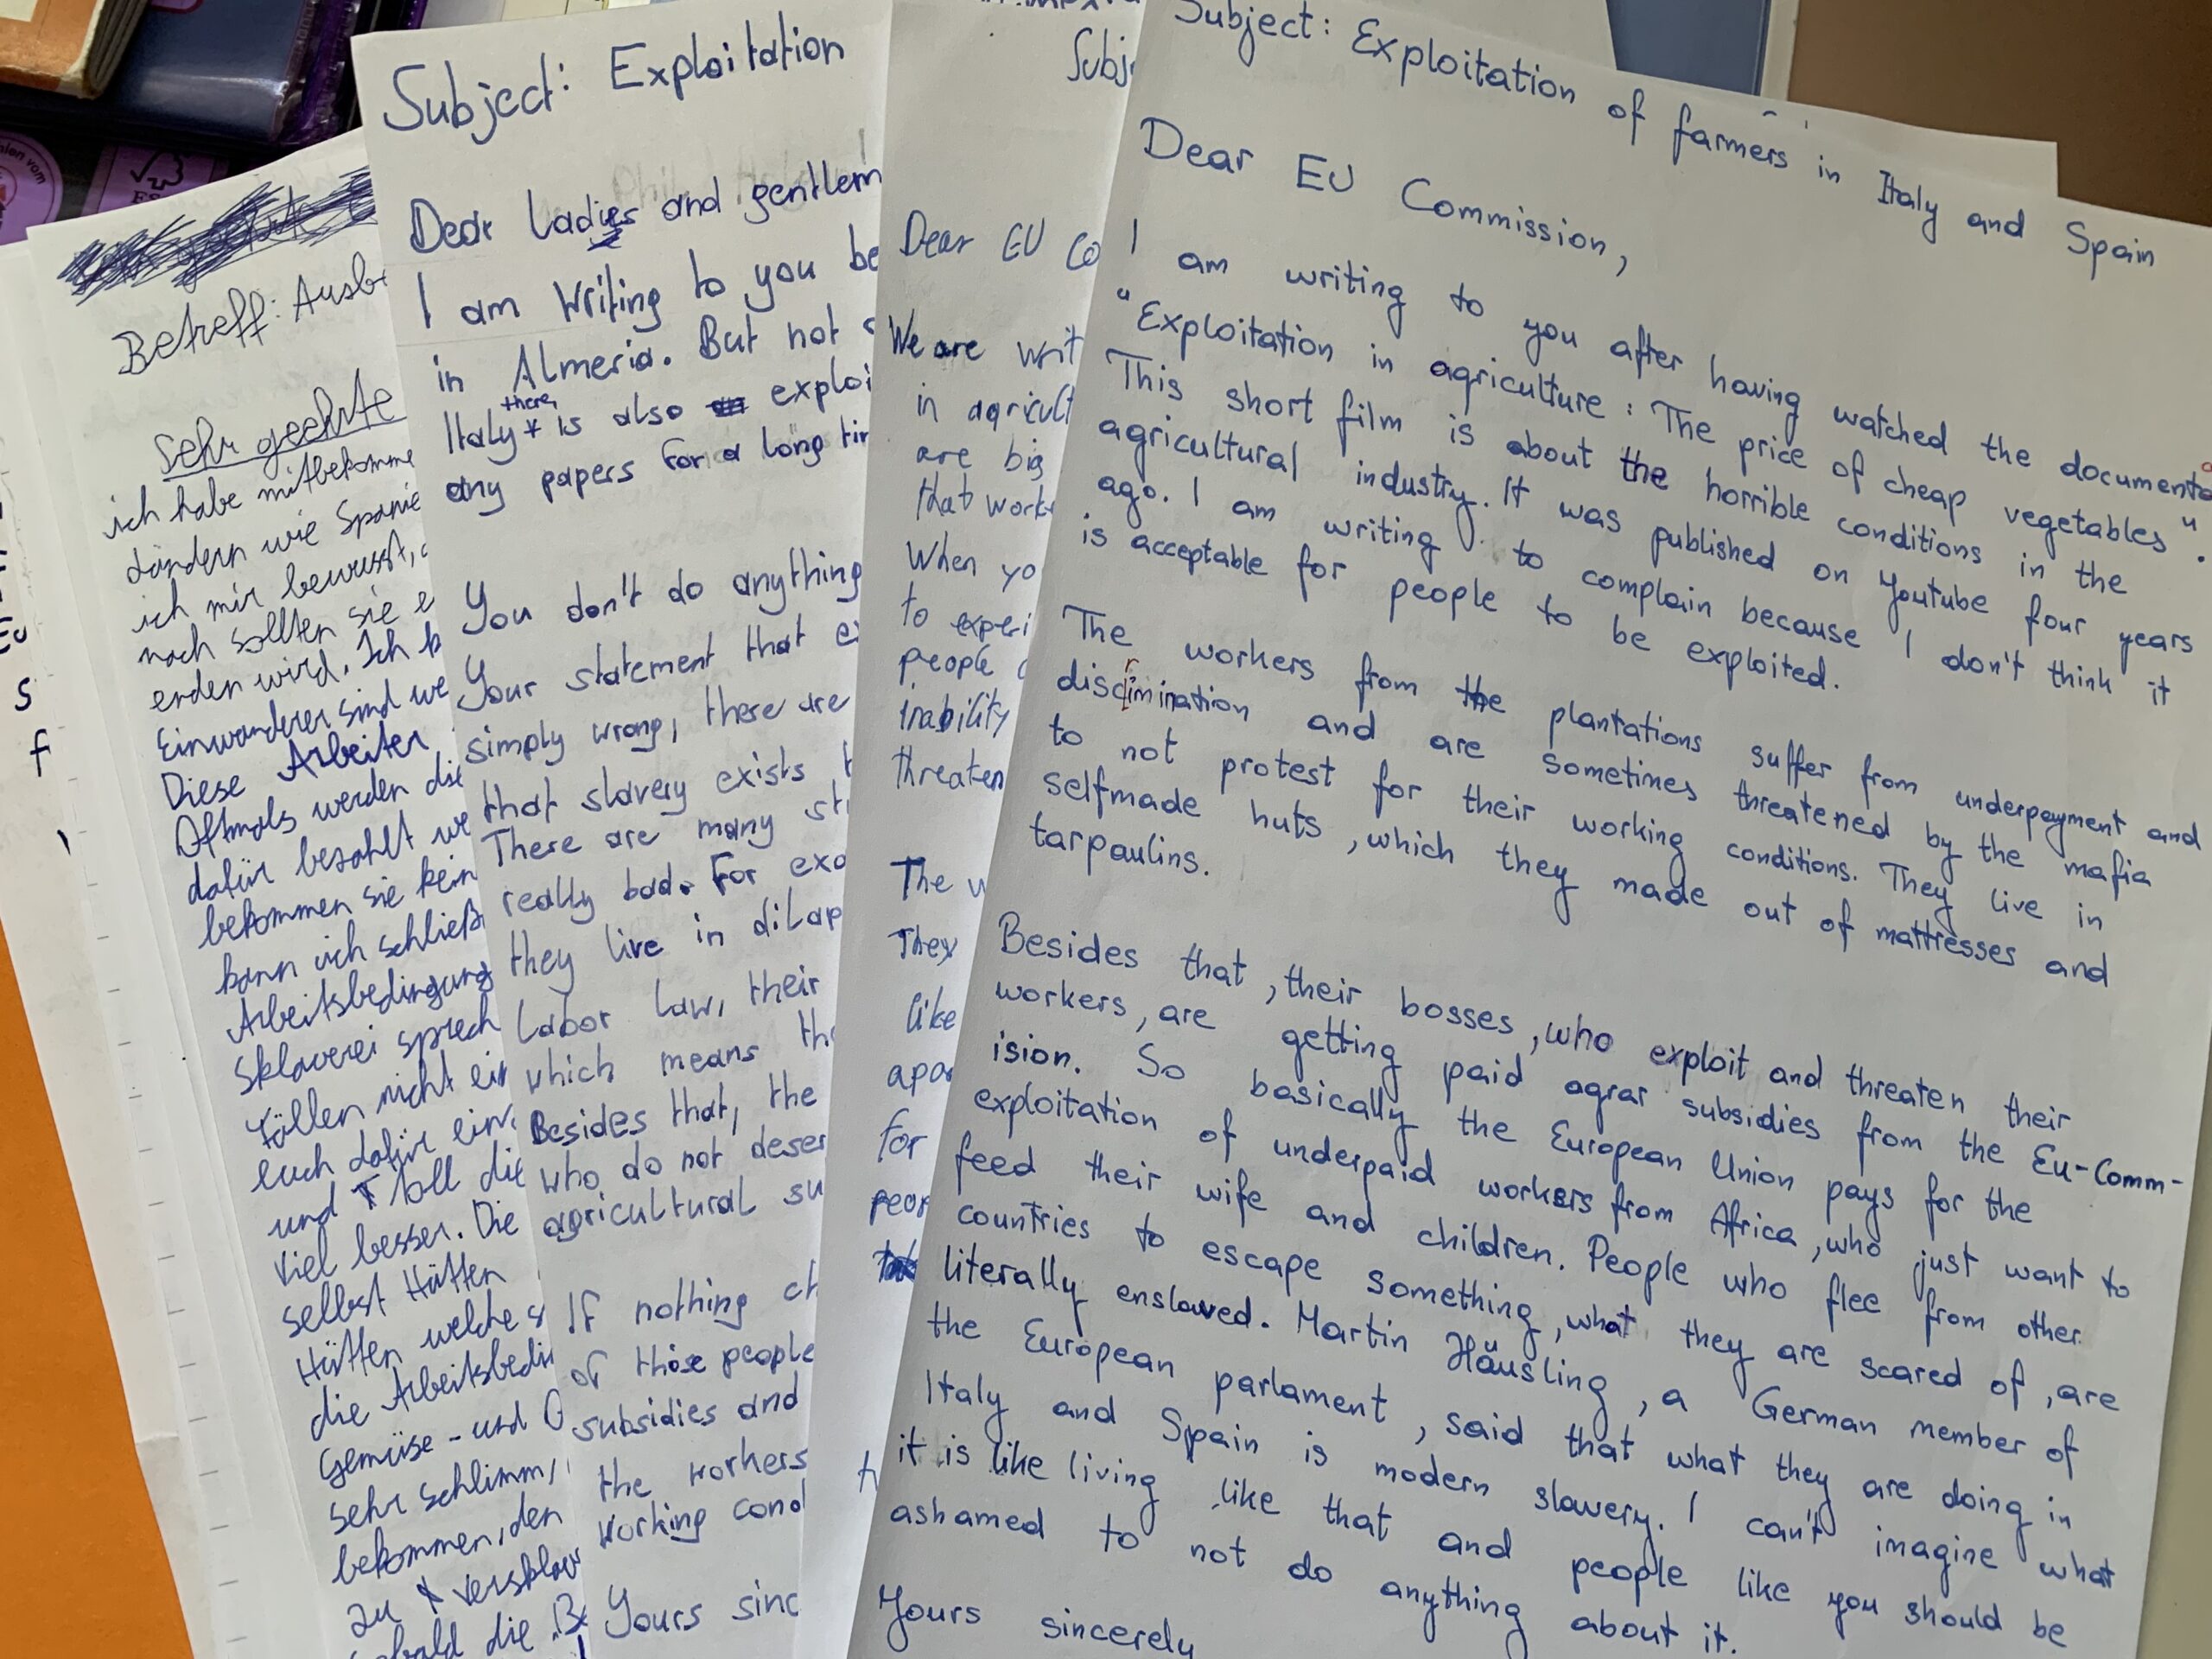 Betreff: Ausb
Sehr geehrte
ich habe mitbekomme
ländern wie Spanie
ich mir bewusst,
noch sollten sie e
enden wird. Ich b
Einwanderer sind we
Diese Arbeiter
Oftmals werden die
dafür bezahlt we
bekommen sie kein
kann ich schließ
Arbeitsbedingung
Sklaverei sprech
Fällen nicht ein
euch dafür
und Toll die
viel besser. Die
selbst Hütten
Hütten welche s
die Arbeitsbedin
Gemüse- und O
sehr schlimm,
bekommen, den
zu versklav
die
Subject: Exploitation
Dear Ladies and gentlem
I am Writing to you be
in Almeria. But not
Italy there is also exploi
any papers for a long tim
You don't do anything
Your statement that ex
simply wrong, there are
that slavery exists
There are many sti
really bad. For exa
they live in dilap
Labor law, their
which means the
Besides that, the
who do not deser
agricultural su
If nothing ch
of those people
subsidies and
the workers
working cond
Yours sinc
Subje
Dear EU Co
We are writ
in agricult
are big
that work
When yo
to experi
people
inability
threaten
The w
They
like
apar
for
peop
Subject: Exploitation of farmers in Italy and Spain
Dear EU Commission,
I am writing to you after having watched the documenta
"Exploitation in agriculture: The price of cheap vegetables".
This short film is about the horrible conditions in the
agricultural industry. It was published on Youtube four years
ago. I am writing to complain because I don't think it
is acceptable for people to be exploited.
The workers from the plantations suffer from underpayment and
discrimination and are sometimes threatened by the mafia
to not protest for their working conditions. They live in
selfmade huts, which they made out of mattresses and
tarpaulins.
Besides that, their bosses, who exploit and threaten their
workers, are getting paid agrar subsidies from the Eu-Comm-
ision. So basically the European Union pays for the
exploitation of underpaid workers from Africa, who just want to
feed their wife and children. People who flee from other
countries to escape something, what they are scared of, are
literally enslaved. Martin Häusling, a German member of
the European parlament, said that what they are doing in
Italy and Spain is modern slavery. I can't imagine what
it is like living like that and people like you should be
ashamed to not do anything about it.
Yours sincerely